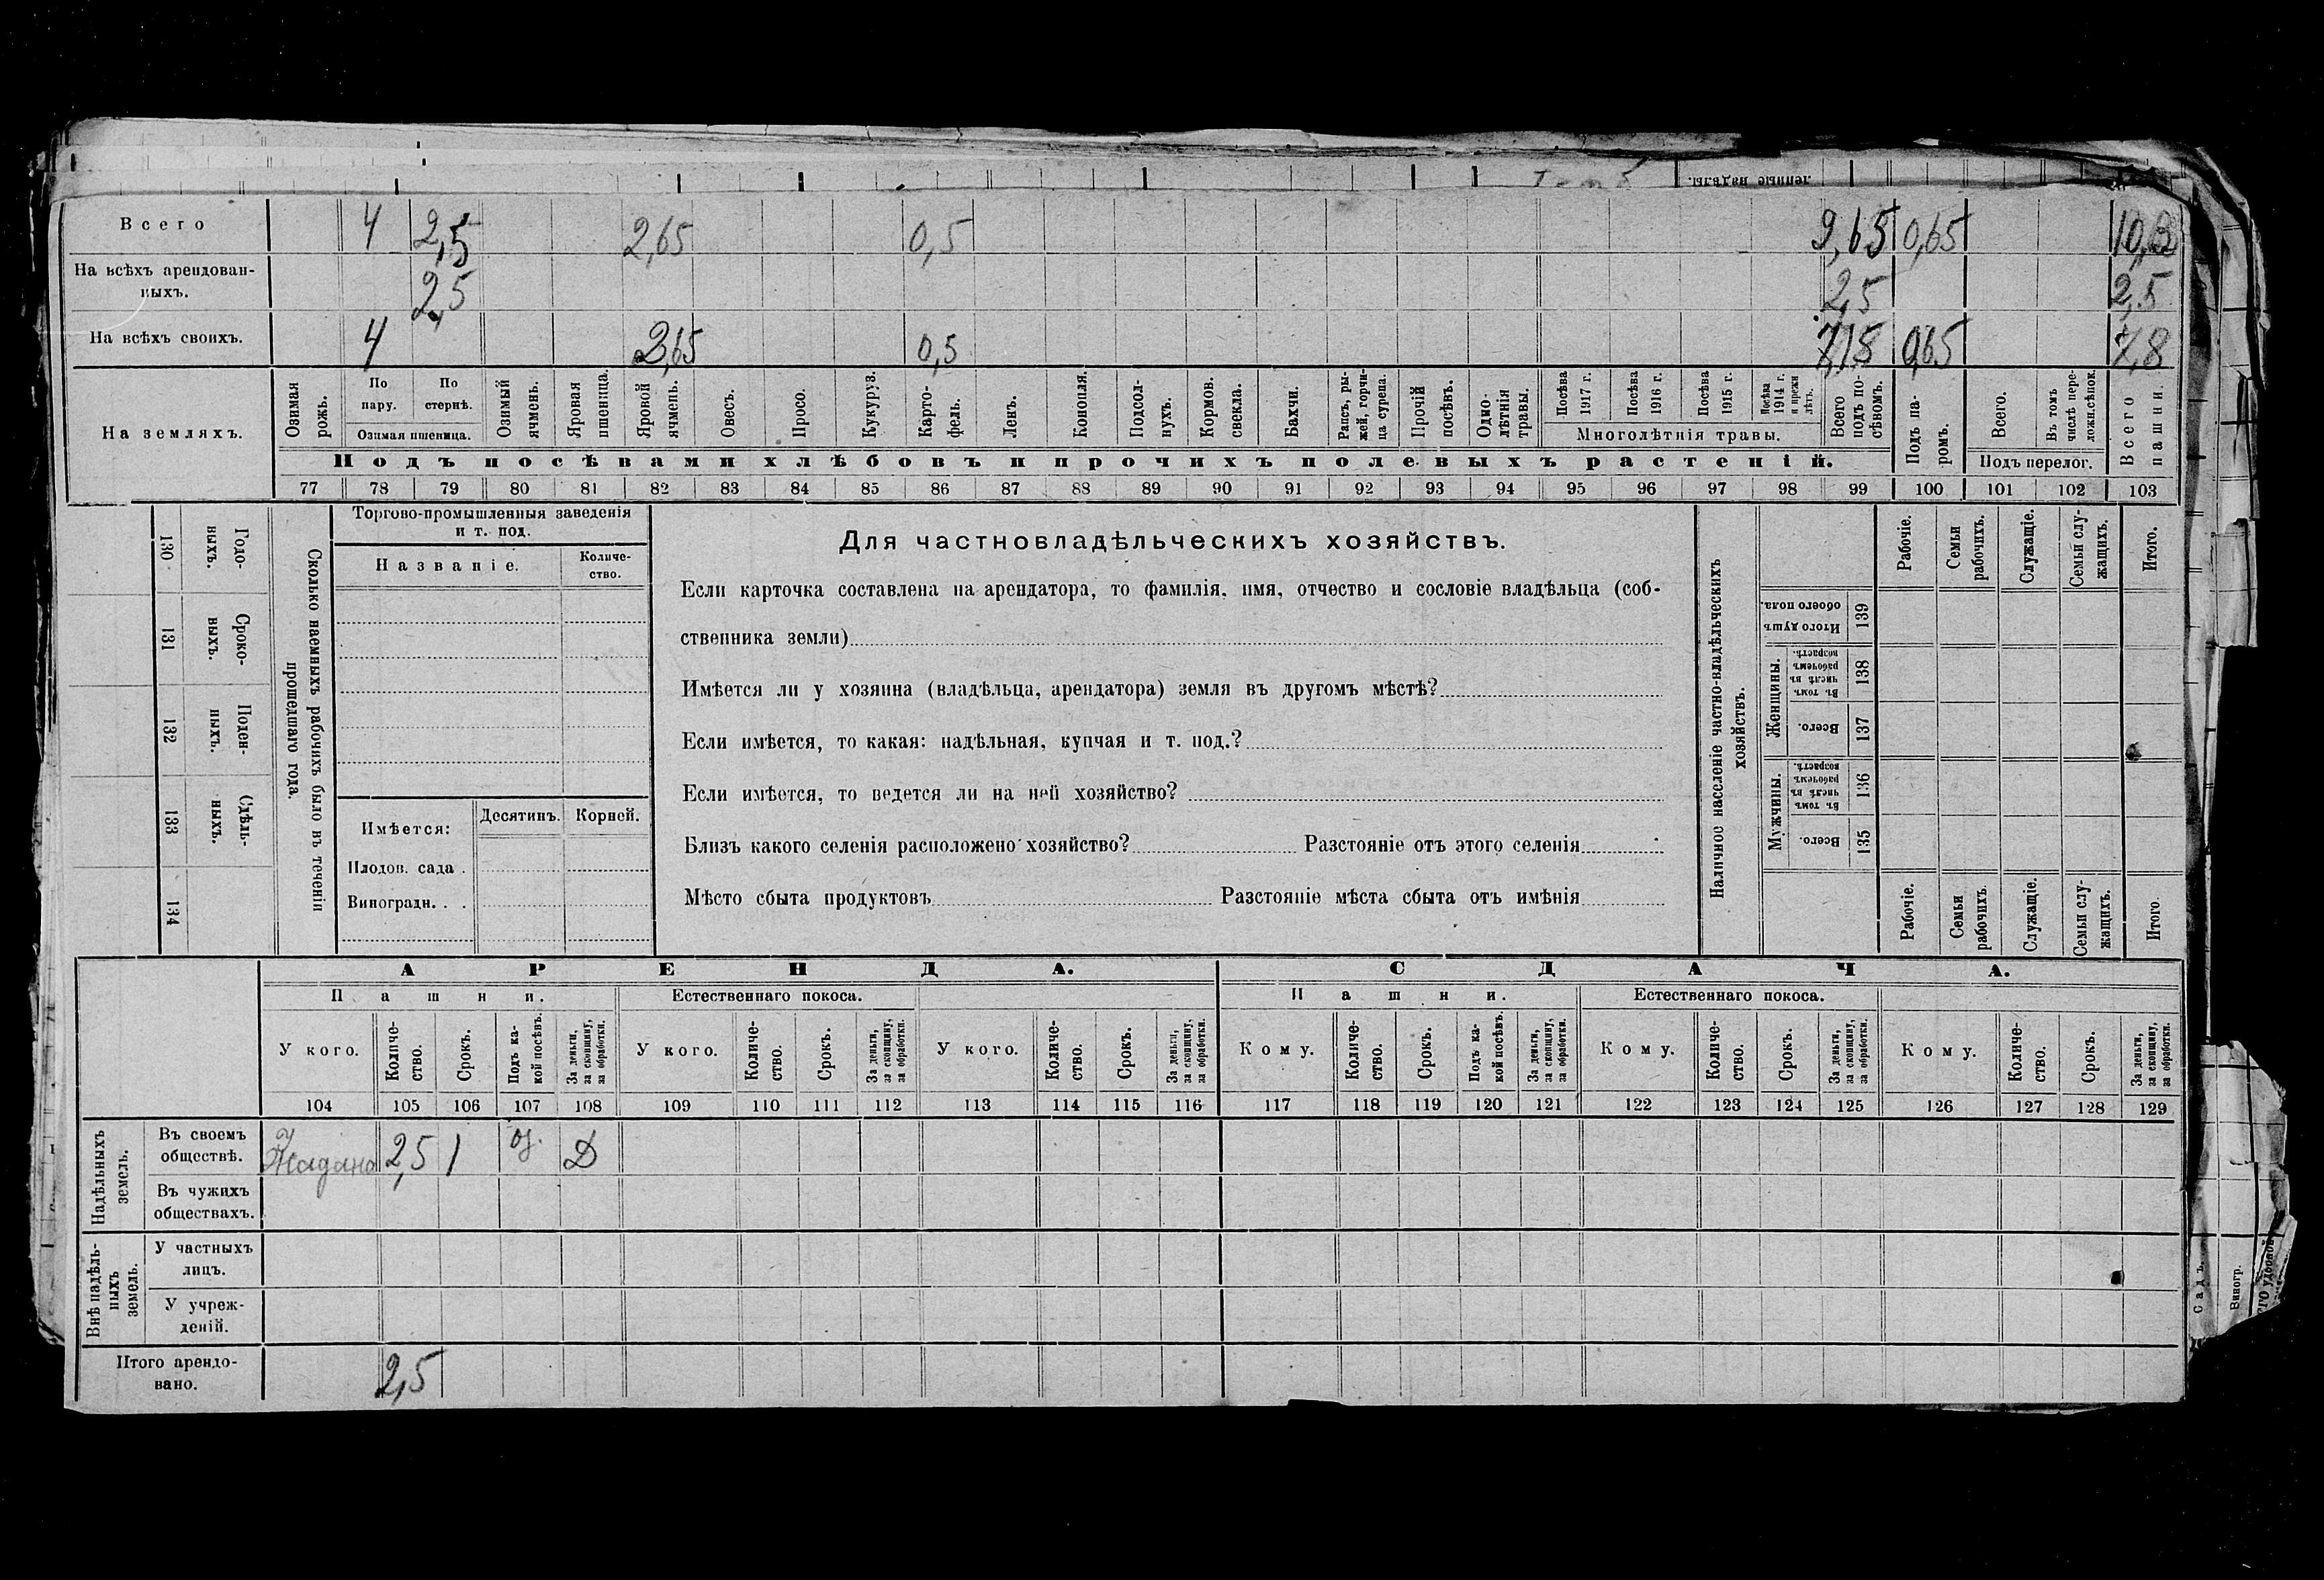 ленные надѣлы.
Всего 4 2,5 2,65 0,5 9,65 0,65 10,3
На всѣхъ арендован-
ныхъ. 2,5 2,5 2,5
На всѣхъ своихъ. 4 2,65 0,5 7,15 0,65 7,8
На земляхъ.
Озимая рожь.
По пару.
По стернѣ.
Озимая пшеница.
Озимый ячмень.
Яровая пшеница.
Яровой ячмень.
Овесъ.
Просо.
Кукуруз.
Карто-
фель.
Ленъ.
Конопля.
Подсол-
нухъ.
Кормов. свекла.
Бахчи.
Рапсъ, ры-
жей, горчи-
ца сурепа.
Прочій посѣвъ.
Одно-
лѣтнія травы.
Посѣва 1917 г.
Посѣва 1916 г.
Посѣва 1915 г.
Посѣва 1914 г. и прежн лѣтъ.
Многолѣтнія травы.
Всего подъ по-
сѣвомъ.
Подъ па-
ромъ.
Всего.
Въ томъ числѣ пере-
ложн.сѣнок.
Подъ перелог.
Всего пашни.
Подъ посѣвами хлѣбовъ и прочихъ полевыхъ растеній.
77 78 79 80 81 82 83 84 85 86 87 88 89 90 91 92 93 94 95 96 97 98 99 100 101 102 103
130 Годо-
выхъ.
131 Сроко-
выхъ.
132 Поден-
ныхъ.
133 Сдѣль-
ныхъ.
134
Сколько наемныхъ рабочихъ было въ теченіи
прошедшаго года.
Торгово-промышленныя заведенія
и т. под.
Названіе. Количе-
ство.
Имѣется: Десятинъ. Корней.
Плодов. сада .
Виноградн. . .
Для частновладѣльческихъ хозяйствъ.
Если карточка составлена на арендатора, то фамилія, имя, отчество и сословіе владѣльца (соб-
ственника земли)
Имѣется ли у хозяина (владѣльца, арендатора) земля въ другомъ мѣстѣ?
Если имѣется, то какая: надѣльная, купчая и т. под.?
Если имѣется, то ведется ли на ней хозяйство?
Близъ какого селенія расположено хозяйство? Разстояніе отъ этого селенія
Мѣсто сбыта продуктовъ Разстояніе мѣста сбыта отъ имѣнія
Наличное населеніе частно-владѣльческихъ
хозяйствъ.
Рабочіе.
Семьи рабочихъ.
Служащіе.
Семьи слу-
жащихъ.
Итого.
Итого душъ обоего пола. 139
Женщины.
Въ томъ числѣ въ рабочемъ возрастѣ. 138
Всего. 137
Мужчины.
Въ томъ числѣ въ рабочемъ возрастѣ. 136
Всего. 135
Рабочіе.
Семьи рабочихъ.
Служащіе.
Семьи слу-
жащихъ.
Итого.
АРЕНДА. СДАЧА.
Пашни. Естественнаго покоса. Пашни. Естественнаго покоса.
У кого.
Количе-
ство.
Срокъ.
Подъ ка-
кой посѣвъ.
За деньги, за скопщину, за обработки.
У кого.
Количе-
ство.
Срокъ.
За деньги, за скопщину, за обработки.
У кого.
Количе-
ство.
Срокъ.
За деньги, за скопщину, за обработки.
Кому.
Количе-
ство.
Срокъ.
Подъ ка-
кой посѣвъ.
За деньги, за скопщину, за обработки.
Кому.
Количе-
ство.
Срокъ.
За деньги, за скопщину, за обработки.
Кому.
Количе-
ство.
Срокъ.
За деньги, за скопщину, за обработки.
104 105 106 107 108 109 110 111 112 113 114 115 116 117 118 119 120 121 122 123 124 125 126 127 128 129
Надѣльныхъ земель.
Въ своемъ
обществѣ. 2,5 1 оз. Д
Въ чужихъ
обществахъ.
Внѣ надѣль-
ныхъ земель.
У частныхъ
лицъ.
У учреж-
деній.
Итого арендо-
вано. 2,5
Садъ.
Виногр.